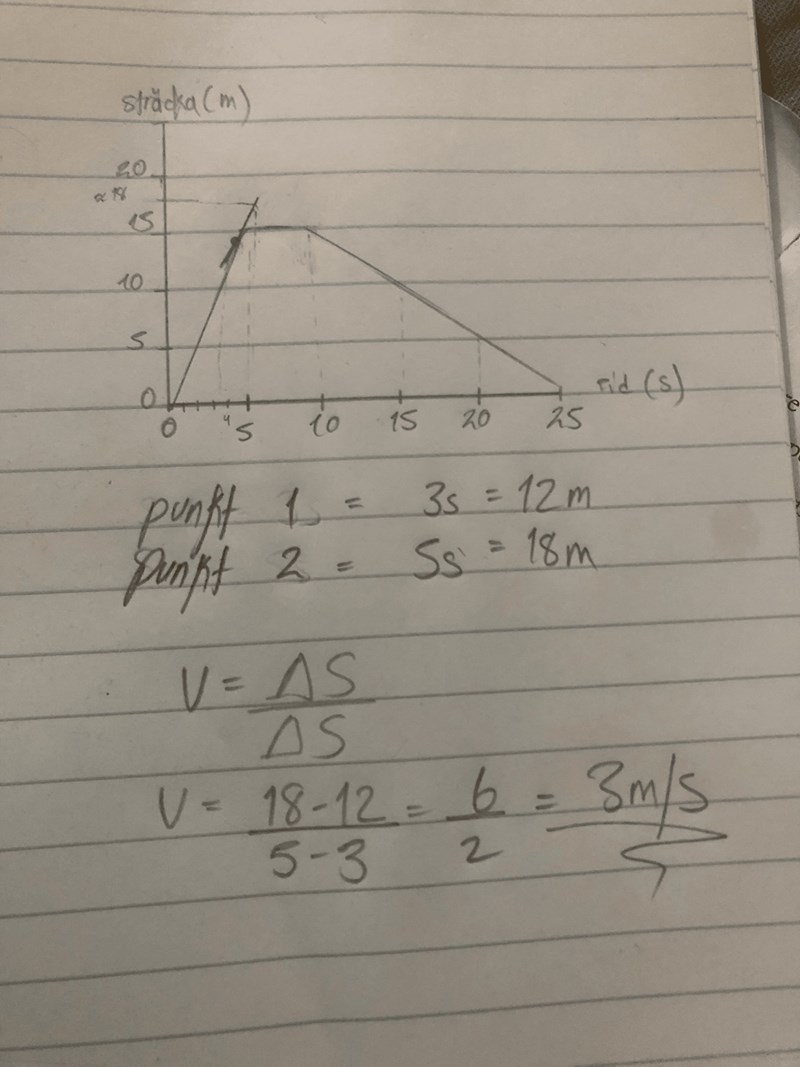 sträcka (m)
20
≈ 18
15
10
5
0
0 4 5 10 15 20 25 tid (s)
punkt 1 = 3s = 12m
punkt 2 = 5s = 18m
V = ΔS
ΔS
V = 18-12 = 6 = 3m/s
5-3 2